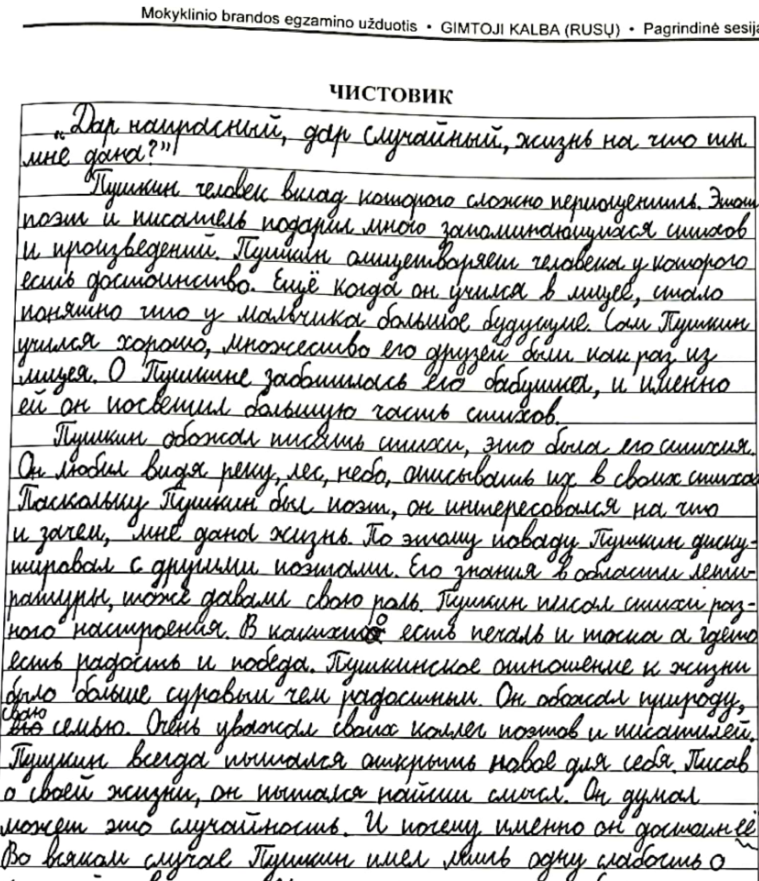 Mokyklinio brandos egzamino užduotis • GIMTOJI KALBA (RUSŲ) • Pagrindinė sesija
ЧИСТОВИК
„Дар напрасный, дар случайный, жизнь на что ты
мне дана?"
Пушкин человек вклад которого сложно периоценить. Этот
поэт и писатель подарил много запоминающихся стихов
и произведений. Пушкин олицетворяет человека у которого
есть достоинство. Ещё когда он учился в лицее, стало
понятно что у мальчика большое будующие. Сам Пушкин
учился хорошо, множество его друзей были как раз из
лицея. О Пушкине заботилась его бабушка, и именно
ей он посветил большую часть стихов.
Пушкин обожал писать стихи, это была его стихия.
Он любил видя реку, лес, небо, описывать их в своих стиха
Паскольку Пушкин был поэт, он интересовался на что
и зачем, мне дана жизнь. По этому поваду Пушкин диску-
тировал с другими поэтами. Его знания в области лети-
ратуры, тоже давали свою роль. Пушкин писал стихи раз-
ного настроения. В какихто есть печаль и тоска а гдето
есть радость и победа. Пушкинское отношение к жизни
было больше суровым чем радостным. Он обожал природу,
свою семью. Очень уважал своих коллег поэтов и писатилей.
Пушкин всегда пытался открыть новое для себя. Писав
о своей жизни, он пытался найти смысл. Он думал
может это случайность. И почему именно он достоин её
Во всяком случае Пушкин имел лишь одну слабость о